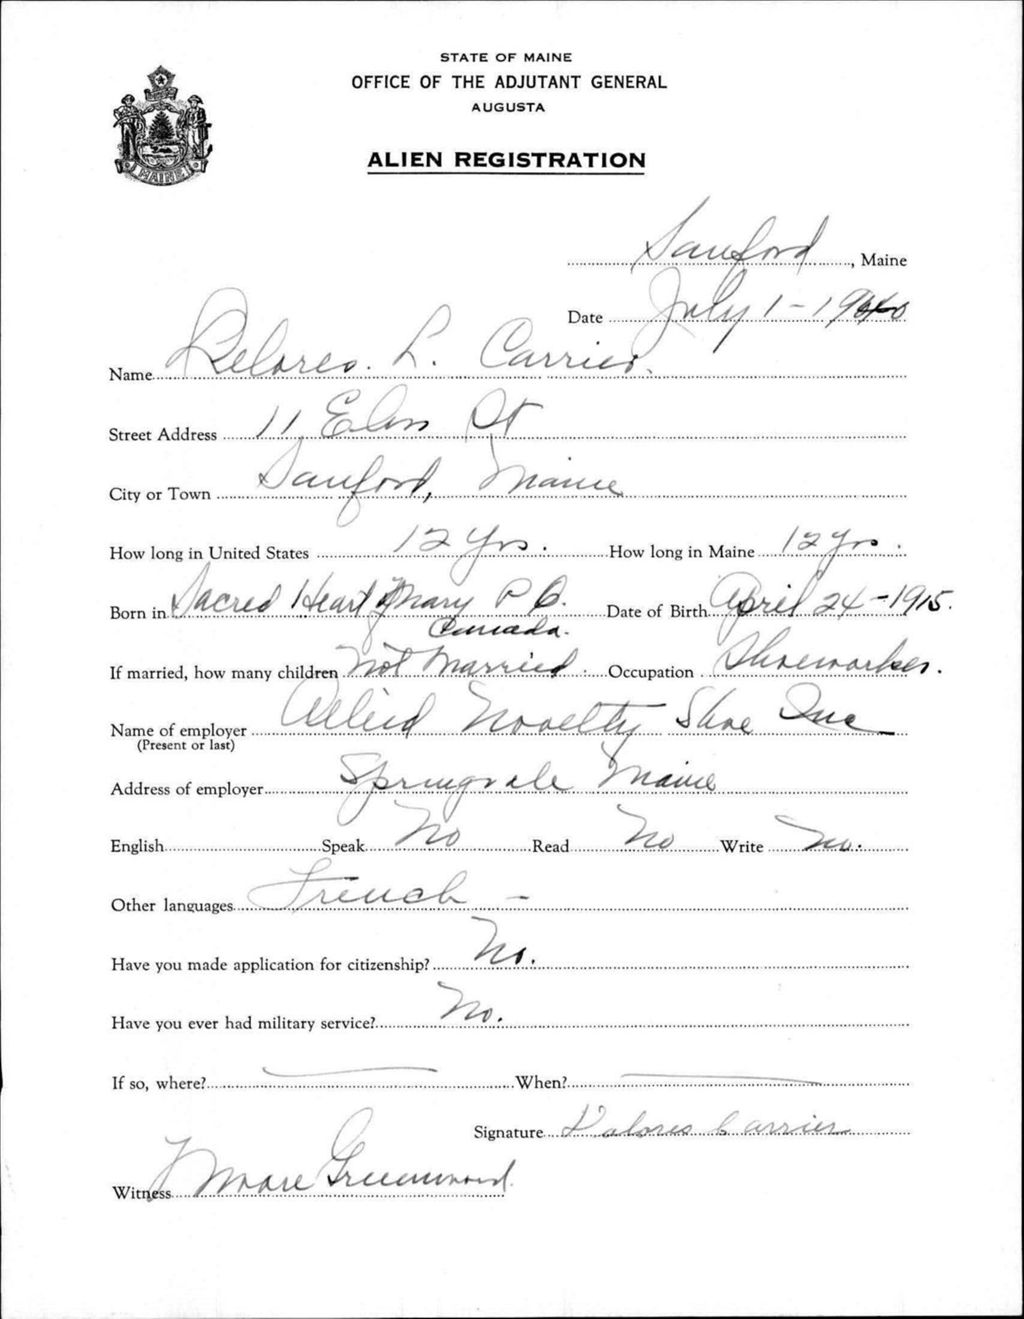 STATE OF MAINE
OFFICE OF THE ADJUTANT GENERAL
AUGUSTA
ALIEN REGISTRATION
MAINE
Sanford, Maine
Date July 1-1940
Name Delores. L. Carrier.
Street Address 11 Elm St
City or Town Sanford, Maine
How long in United States 12 Yrs. How long in Maine 12 yrs.
Born in Sacred Heart of Mary P Q. Date of Birth April 24-1915.
Canada.
If married, how many children Not Married. Occupation Shoeworker.
Name of employer Allied Novelty Shoe Inc
(Present or last)
Address of employer Springvale Maine
English Speak No Read No Write No.
Other languages French -
Have you made application for citizenship? No.
Have you ever had military service? No.
If so, where? When?
Signature Dalores Carrier
Witness Greenwood